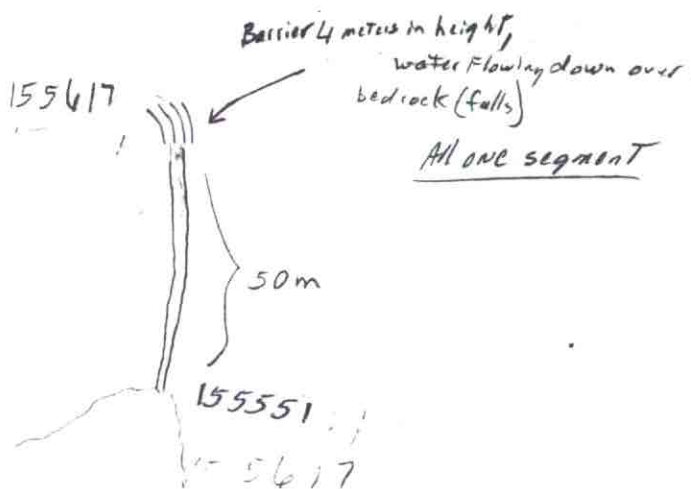 Barrier 4 meters in height,
water Flowing down over
bedrock (falls)
All one segment
155617
50m
155551